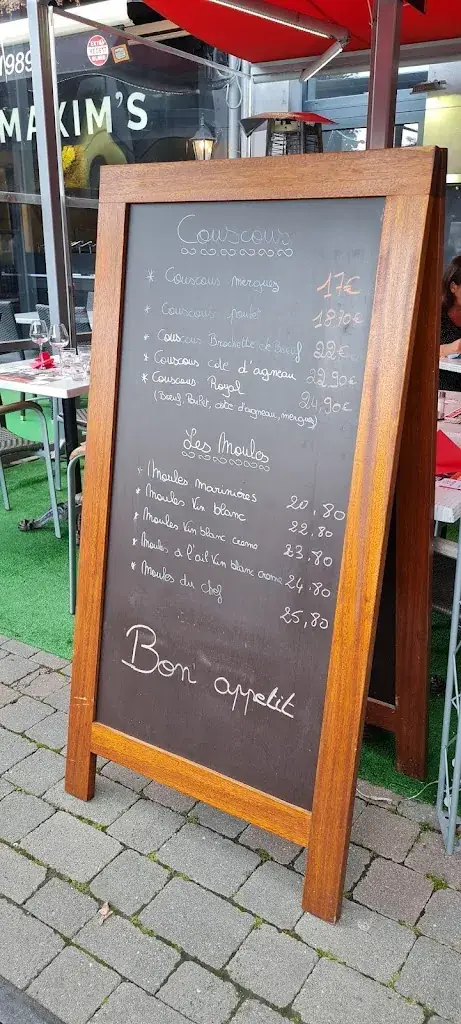 1989
MAXIM'S
Couscous
* Couscous merguez 17€
* Couscous poulet 18,90€
* Couscous Brochette de Bœuf 22€
* Couscous cote d'agneau 22,90€
* Couscous Royal 24,90€
(Bœuf, Poulet, cote d'agneau, merguez)
Les Moules
* Moules marinières 20,80
* Moules Vin blanc 22,80
* Moules Vin blanc creme 23,80
* Moules a l'ail Vin blanc creme 24,80
* Moules du chef 25,80
Bon appetit